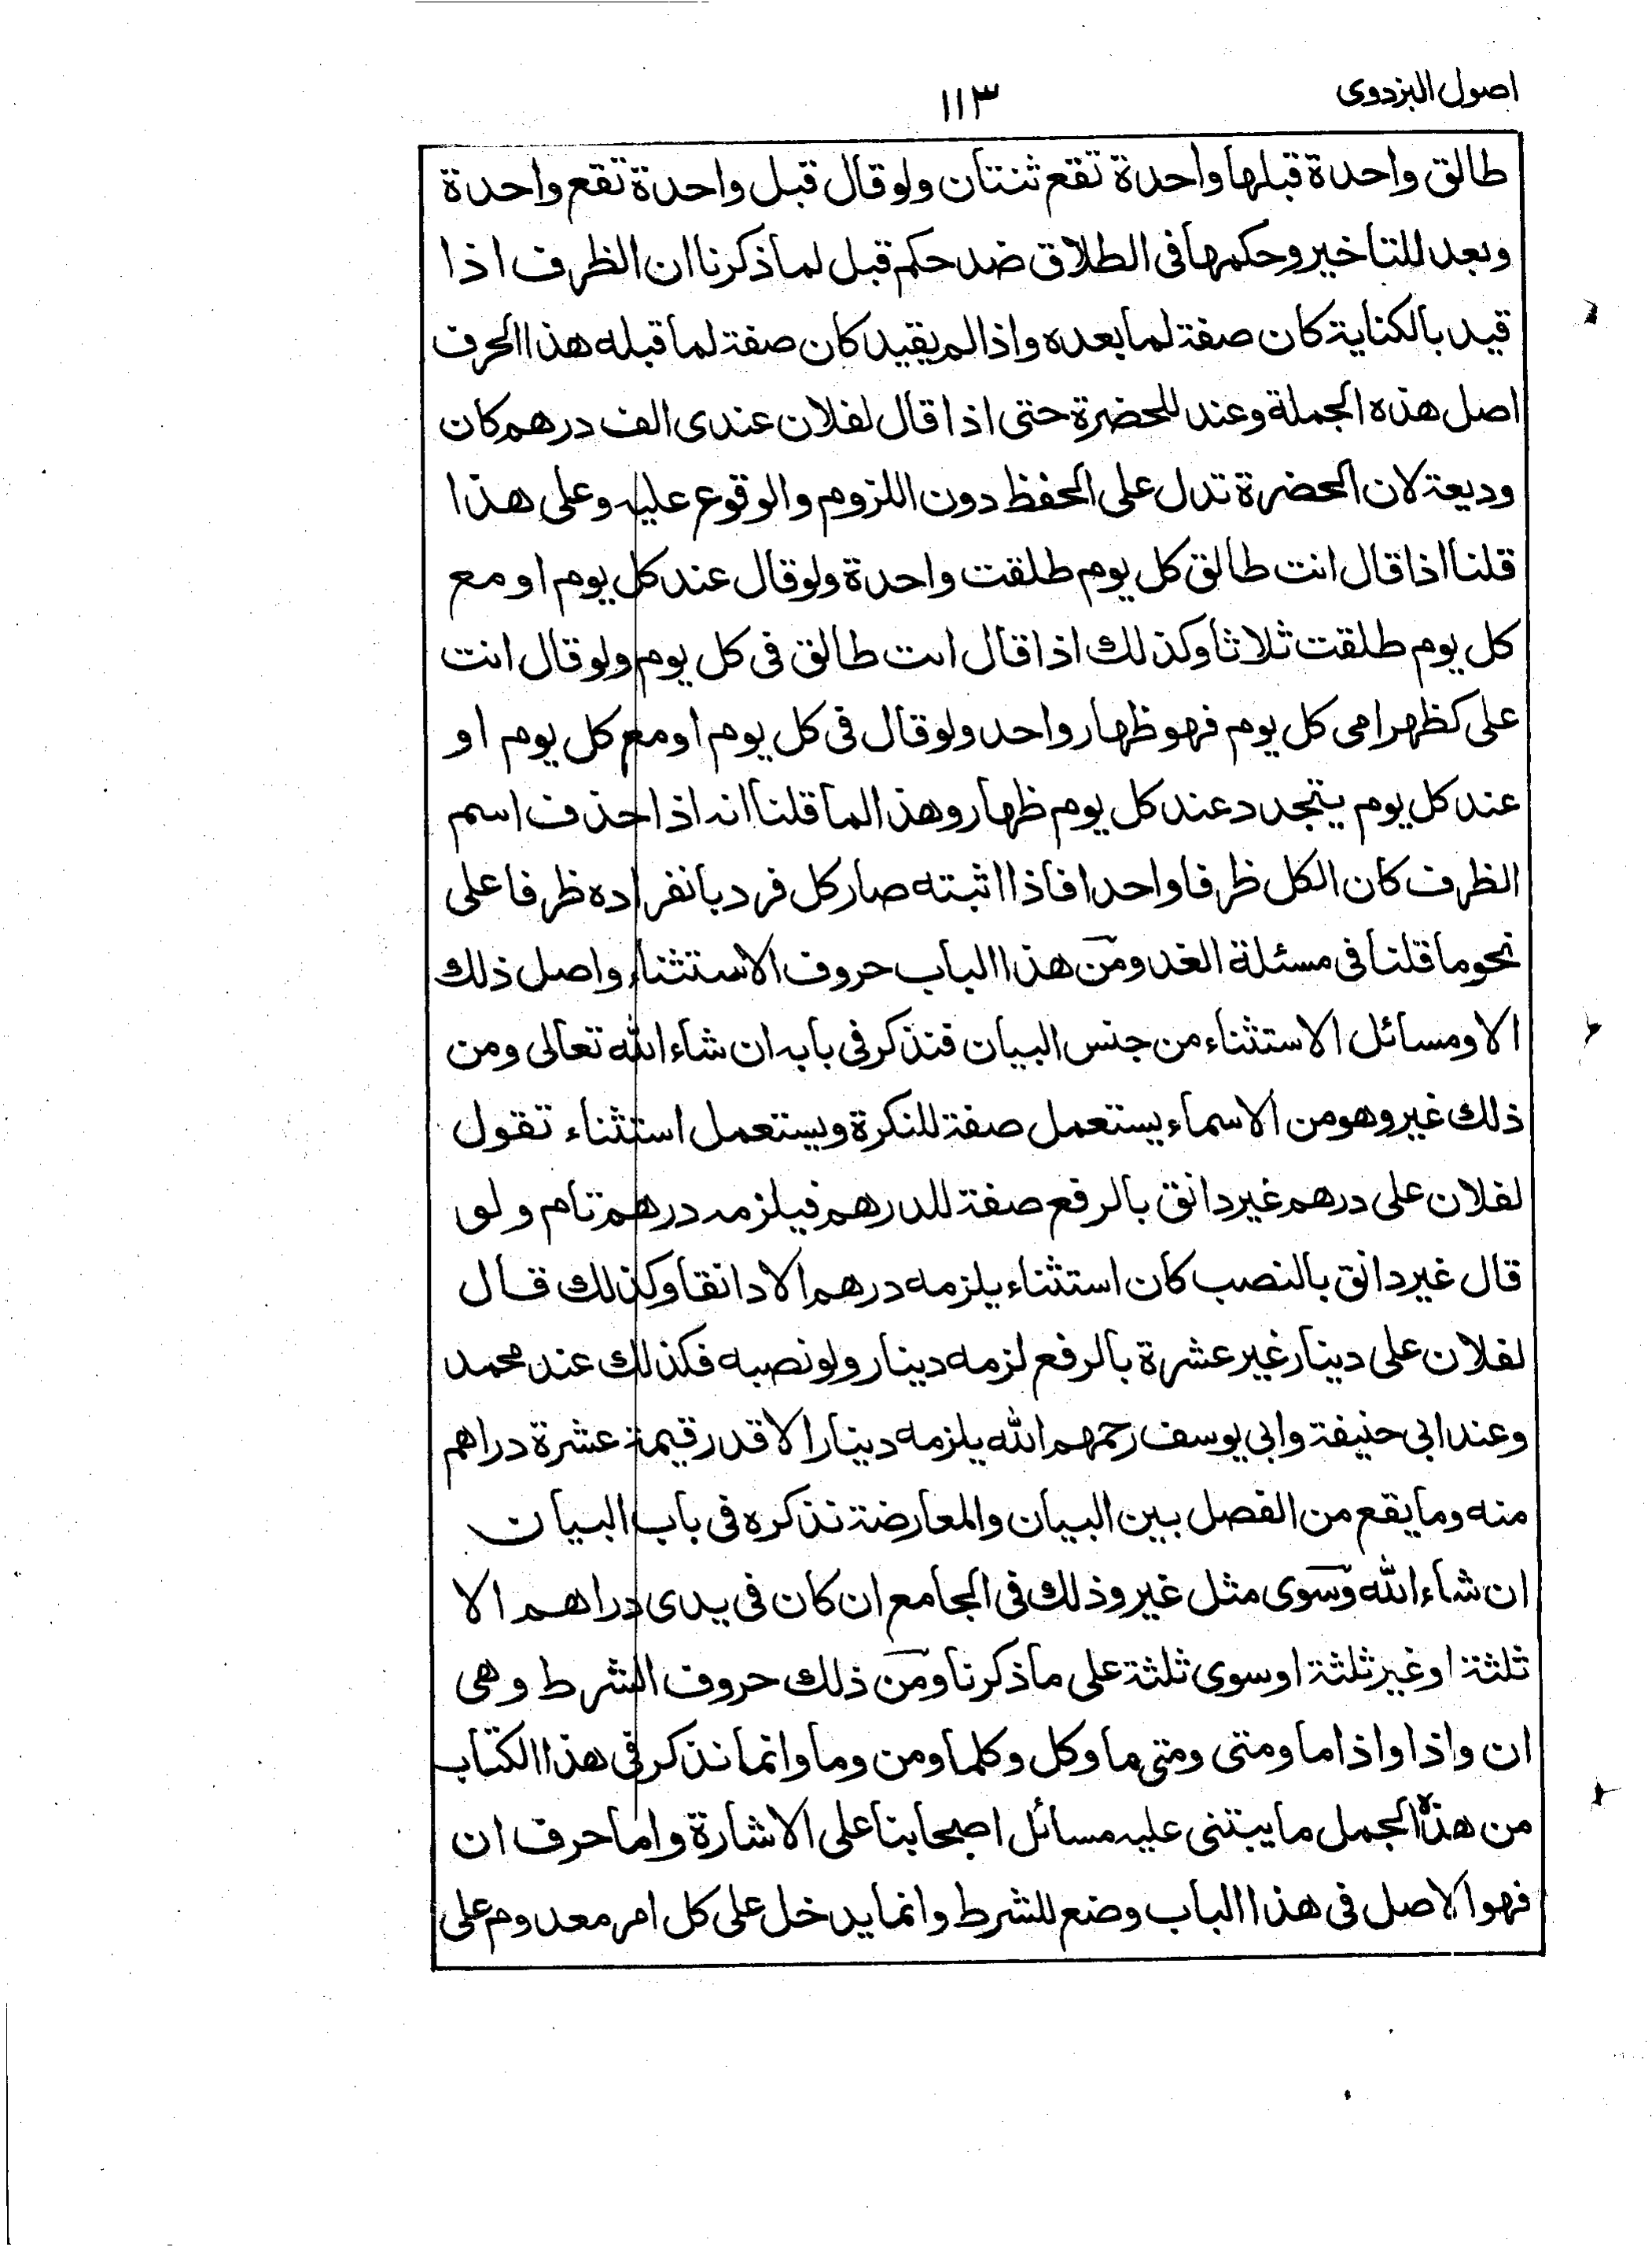 اصول البزدوى
١١٣
طالق واحدة قبلها واحدة تقع ثنتان ولو قال قبل واحدة تقع واحدة
وبعد للتاخير وحكمها فى الطلاق ضد حكم قبل لما ذكرنا ان الظرف اذا
قيد بالكناية كان صفة لما بعده واذا لم يقيد كان صفة لما قبله هذا الحرف
اصل هذه الجملة وعند للحضرة حتى اذا قال لفلان عندى الف درهم كان
وديعة لان الحضرة تدل على الحفظ دون اللزوم والوقوع عليه وعلى هذا
قلنا اذا قال انت طالق كل يوم طلقت واحدة ولو قال عند كل يوم او مع
كل يوم طلقت ثلاثا وكذلك اذا قال انت طالق فى كل يوم ولو قال انت
على كظهر امى كل يوم فهو ظهار واحد ولو قال فى كل يوم او مع كل يوم او
عند كل يوم يتجدد عند كل يوم ظهار وهذا لما قلنا انه اذا حذف اسم
الظرف كان الكل ظرفا واحدا فاذا اثبته صار كل فرد بانفراده ظرفا على
نحو ما قلنا فى مسئلة الغد ومن هذا الباب حروف الاستثناء واصل ذلك
الا ومسائل الاستثناء من جنس البيان فنذكر فى بابه ان شاء الله تعالى ومن
ذلك غير وهو من الاسماء يستعمل صفة للنكرة ويستعمل استثناء تقول
لفلان على درهم غير دانق بالرفع صفة للدرهم فيلزمه درهم تام ولو
قال غير دانق بالنصب كان استثناء يلزمه درهم الا دانقا وكذلك قال
لفلان على دينار غير عشرة بالرفع لزمه دينار ولو نصبه فكذلك عند محمد
وعند ابى حنيفة وابى يوسف رحمهم الله يلزمه دينار الا قدر قيمة عشرة دراهم
منه وما يقع من الفصل بين البيان والمعارضة نذكره فى باب البيان
ان شاء الله وسوى مثل غير وذلك فى الجامع ان كان فى يدى دراهم الا
ثلثة او غير ثلثة او سوى ثلثة على ما ذكرنا ومن ذلك حروف الشرط وهى
ان واذا واذا ما ومتى ومتى ما وكل وكلما ومن وما وانما نذكر فى هذا الكتاب
من هذه الجمل ما يبتنى عليه مسائل اصحابنا على الاشارة واما حرف ان
فهو الاصل فى هذا الباب وضع للشرط وانما يدخل على كل امر معدوم على